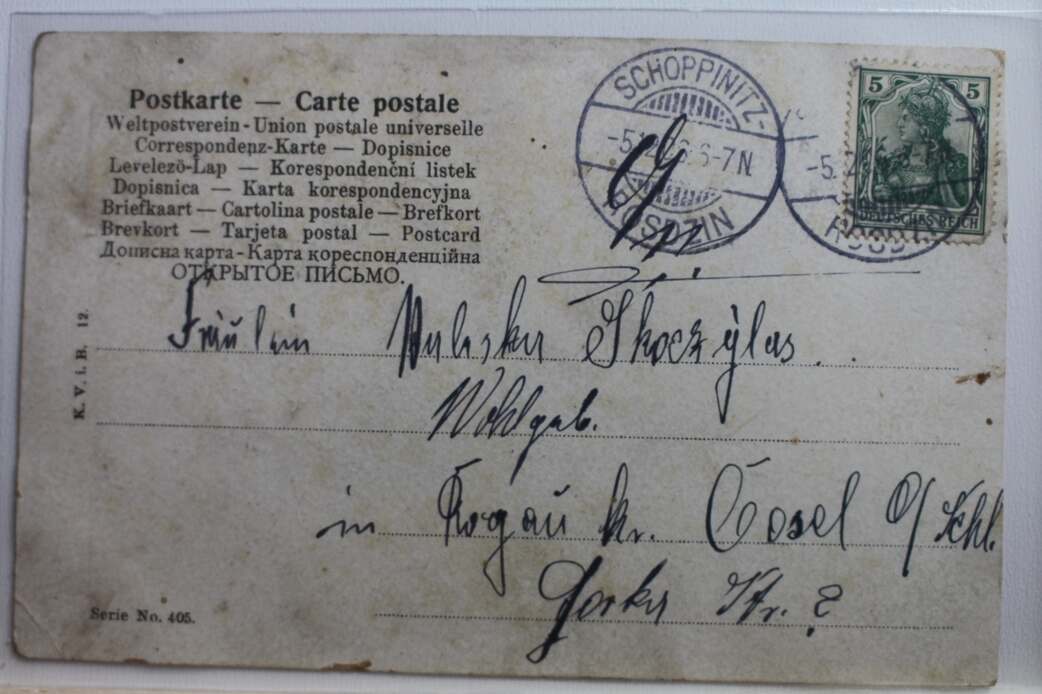 Postkarte — Carte postale
Weltpostverein - Union postale universelle
Correspondenz-Karte — Dopisnice
Levelezö-Lap — Korespondenční listek
Dopisnica — Karta korespondencyjna
Briefkaart — Cartolina postale — Brefkort
Brevkort — Tarjeta postal — Postcard
Дописна карта - Карта кореспонденційна
ОТКРЫТОЕ ПИСЬМО.
SCHOPPINITZ-
6-7N.
ROSDZIN
5 5
DEUTSCHES REICH
K. V. i. B. 12.
Fräulein Skoczylas.
Wohlgeb.
in Rogau kr. Cosel O/Schl.
Str. 2
Serie No. 405.